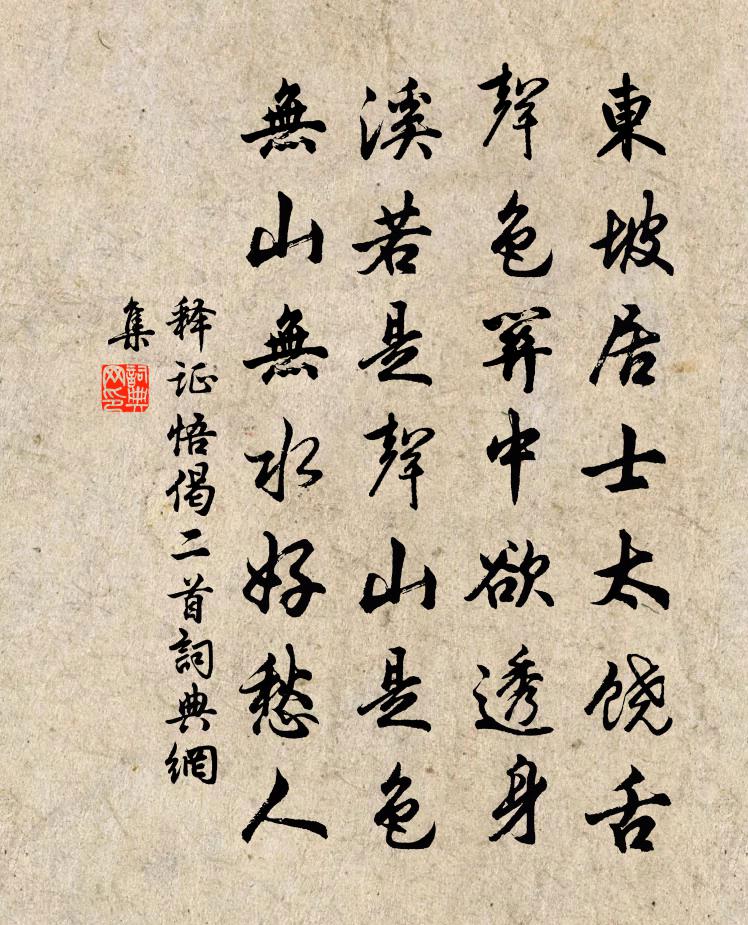 東坡居士太饶舌
聲色関中欲透身
溪若是聲山是色
無山無水好愁人
释证悟偈二首詞典網
集
詞典網印